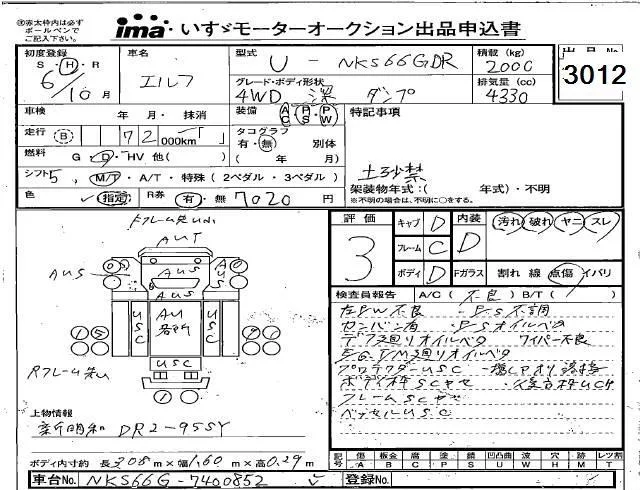 ※赤太枠内は必ず
ボールペンで
ご記入下さい。
ima いすゞモーターオークション出品申込書
初度登録
S・H・R
6/10月
車名
エルフ
型式
U - NKS66GDR
積載 (kg)
2000
出品No
3012
グレード・ボディ形状
4WD 深 ダンプ
排気量 (cc)
4330
車検 年 月・抹消
装備 AC PS PW
特記事項
走行 B 72 000km
タコグラフ
有・無 別体
( 年 月)
燃料 G・D・HV 他( )
土砂禁
シフト 5, M/T・A/T・特殊(2ペダル・3ペダル)
架装物年式:( 年式)・不明
※不明の場合は、不明に○をする。
色 指定 R券 有・無 7020 円
評価
3
キャブ D
フレーム C
ボディ D
内装 D
汚れ 破れ ヤニ スレ
Fガラス 割れ 線 点傷 イバリ
AUT
AUS
AUS
AUS
AU
各所
USC
USC
USC
検査員報告 A/C(不良) B/T( )
左PW不良 ・P/S不調
カンバン有 ・P/Sオイルベタ
デフ廻りオイルベタ ワイパー不良
E/G T/M廻りオイルベタ
プロテクターUSC
ボディ枠SCサセ
フレームSCサセ
ベッセルUSC
上物情報
新明和 DR2-95SY
ボディ内寸約 長3.08m×幅1.60m×高0.29m
記号 傷 A 板金 B 腐 C 塗 P 錆 S 凹凸曲 U 波 W 穴 H 跡 M レツ割 T
車台No. NKS66G-7400852
登録No.